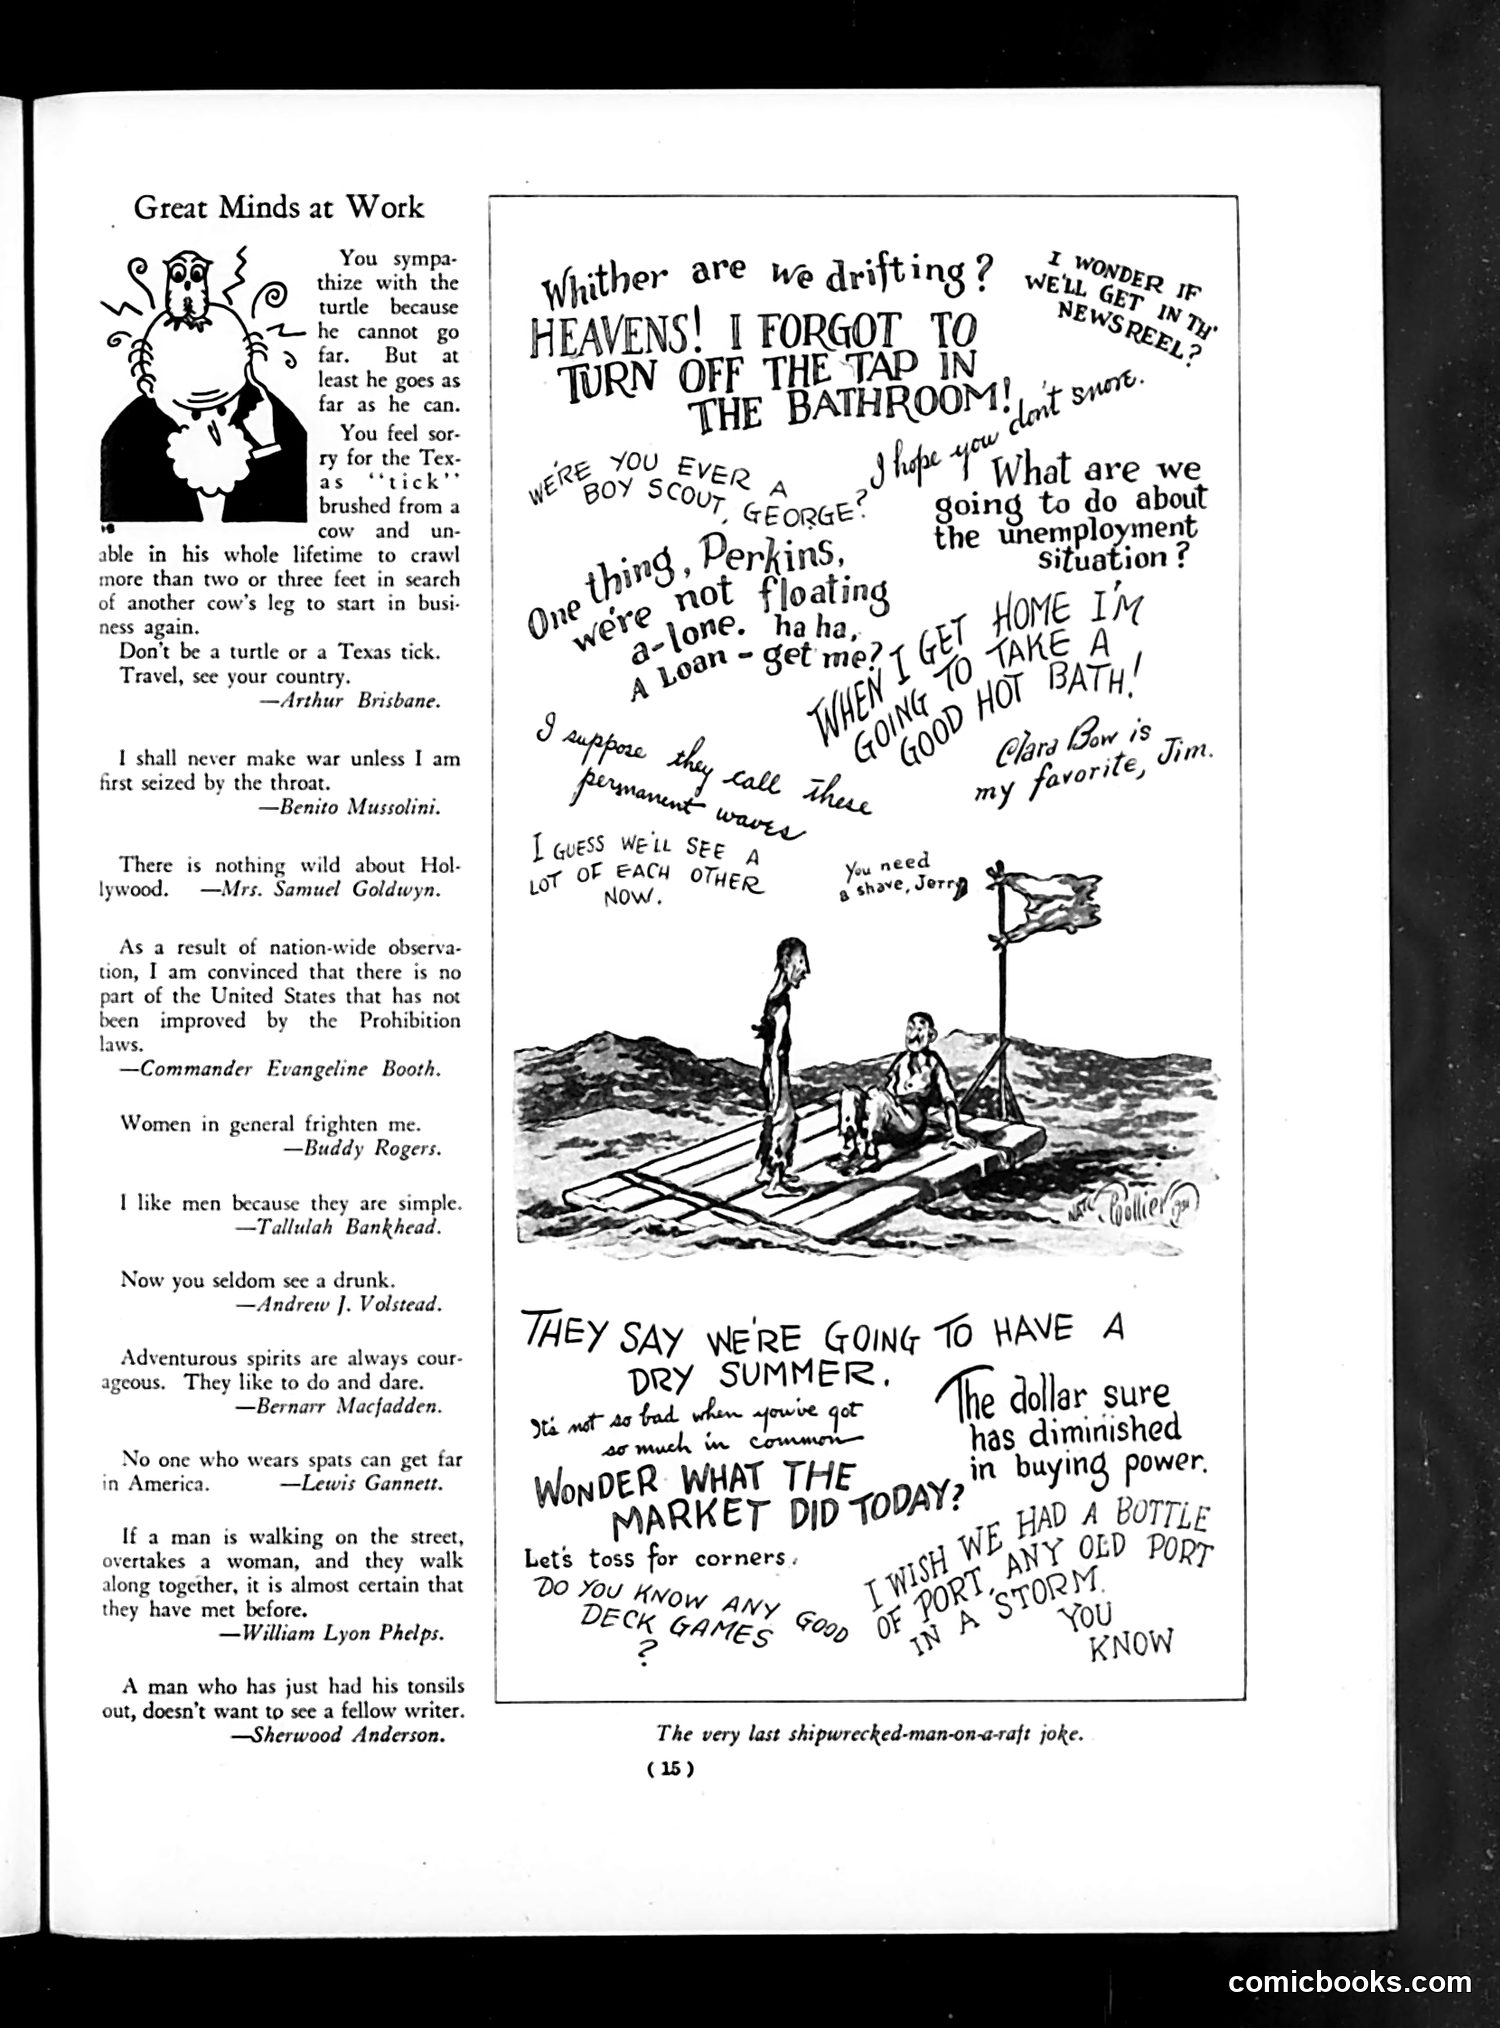 Great Minds at Work
You sympa-
thize with the
turtle because
he cannot go
far. But at
least he goes as
far as he can.
You feel sor-
ry for the Tex-
as "tick"
brushed from a
cow and un-
able in his whole lifetime to crawl
more than two or three feet in search
of another cow's leg to start in busi-
ness again.
Don't be a turtle or a Texas tick.
Travel, see your country.
—Arthur Brisbane.
I shall never make war unless I am
first seized by the throat.
—Benito Mussolini.
There is nothing wild about Hol-
lywood. —Mrs. Samuel Goldwyn.
As a result of nation-wide observa-
tion, I am convinced that there is no
part of the United States that has not
been improved by the Prohibition
laws.
—Commander Evangeline Booth.
Women in general frighten me.
—Buddy Rogers.
I like men because they are simple.
—Tallulah Bankhead.
Now you seldom see a drunk.
—Andrew J. Volstead.
Adventurous spirits are always cour-
ageous. They like to do and dare.
—Bernarr Macfadden.
No one who wears spats can get far
in America. —Lewis Gannett.
If a man is walking on the street,
overtakes a woman, and they walk
along together, it is almost certain that
they have met before.
—William Lyon Phelps.
A man who has just had his tonsils
out, doesn't want to see a fellow writer.
—Sherwood Anderson.
Whither are we drifting?
I WONDER IF
WE'LL GET IN TH'
NEWSREEL?
HEAVENS! I FORGOT TO
TURN OFF THE TAP IN
THE BATHROOM!
I hope you don't snore.
WE'RE YOU EVER A
BOY SCOUT, GEORGE?
What are we
going to do about
the unemployment
situation?
One thing, Perkins,
we're not floating
a-lone. ha ha,
A Loan - get me?
WHEN I GET HOME I'M
GOING TO TAKE A
GOOD HOT BATH!
I suppose they call these
permanent waves
Clara Bow is
my favorite, Jim.
I GUESS WE'LL SEE A
LOT OF EACH OTHER
NOW.
You need
a shave, Jerry
NATE Collier
THEY SAY WE'RE GOING TO HAVE A
DRY SUMMER.
It's not so bad when you've got
so much in common
The dollar sure
has diminished
in buying power.
WONDER WHAT THE
MARKET DID TODAY?
Let's toss for corners.
DO YOU KNOW ANY GOOD
DECK GAMES
?
I WISH WE HAD A BOTTLE
OF PORT, ANY OLD PORT
IN A STORM.
YOU
KNOW
The very last shipwrecked-man-on-a-raft joke.
(15)
comicbooks.com